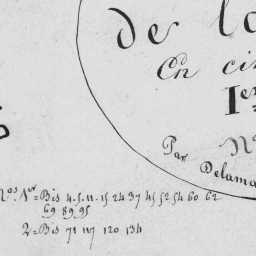 de la
En cin
Ier
Par
Delama
Nos. 1er = Bis 4. 5. 11. 15 24 37 45 52 54 60 62
69 89 95
2 = Bis 71 117 120 134